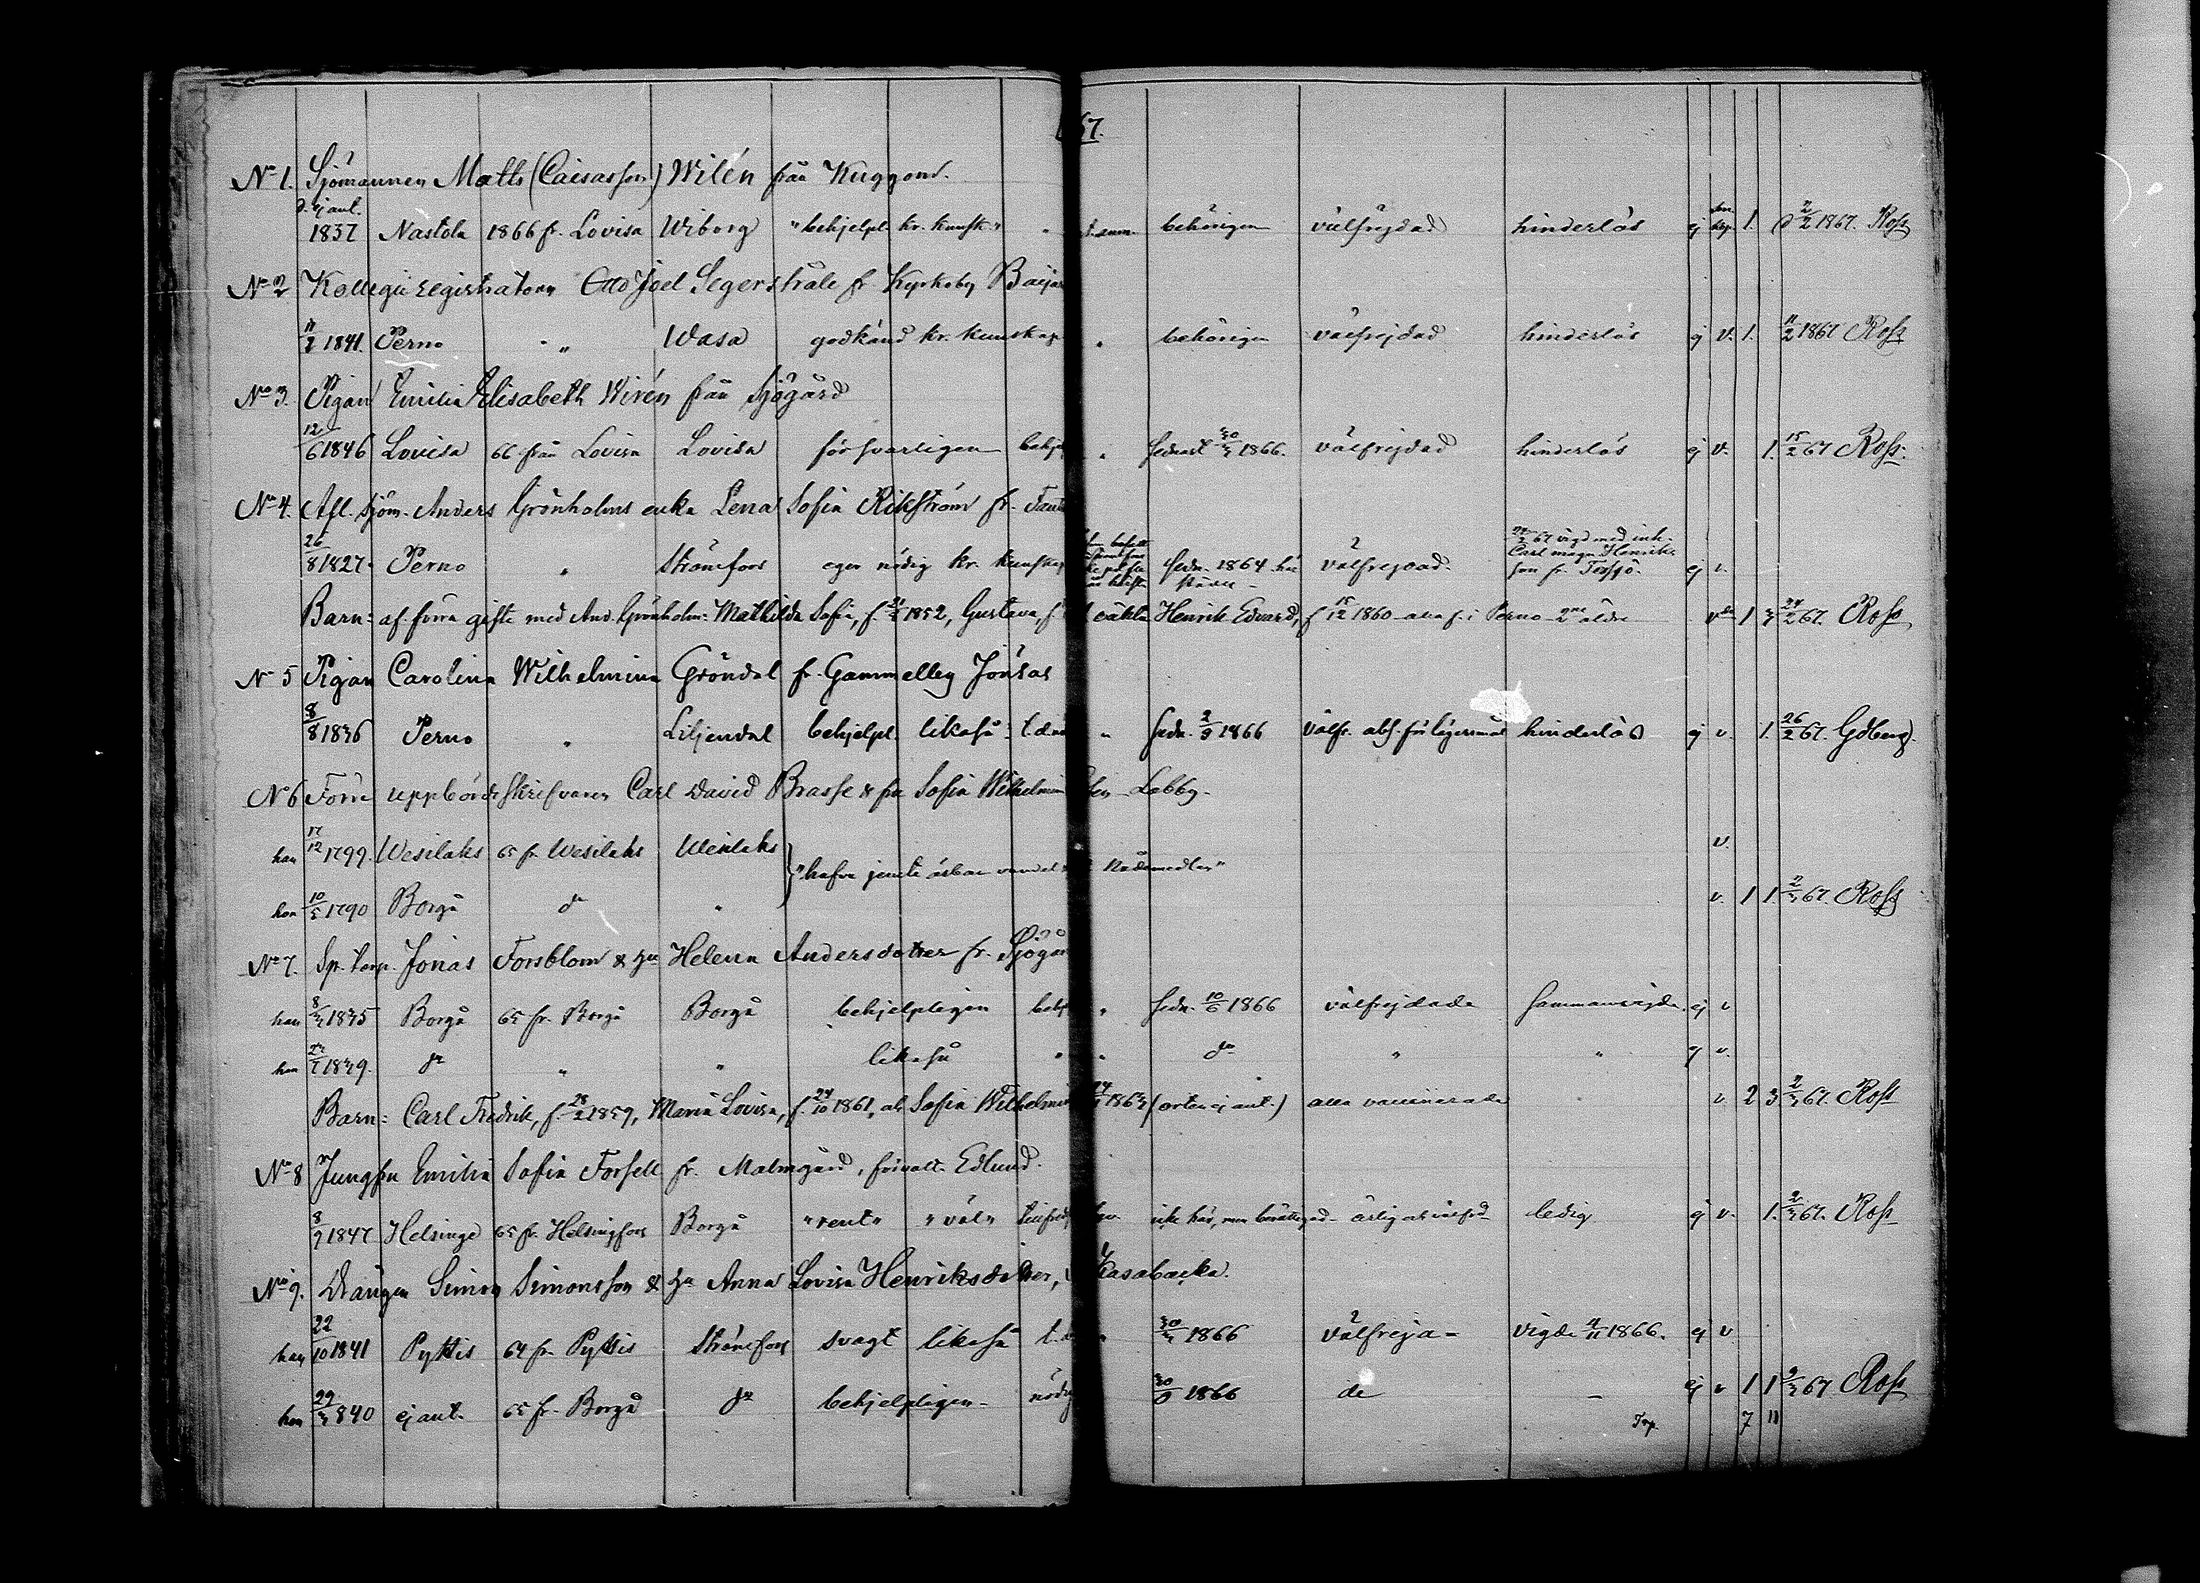 67.
No 1. Sjömannen Matts (Caisasson) Wilén från Kuggom.
d. ej ant.
1837 Nastola 1866 fr. Lovisa Wiborg "behjelpl. kr. kunsk." " behörigen välfrejdad hinderlös ej 1. d 2/2 1867. Ross
No 2 Kollegii registratorn Otto Joel Segerstråle fr Kyrkoby
1841. Perno " Wasa godkänd kr. kunskap " behörigen välfrejdad hinderlös ej v. 1. 11/2 1867 Ross
No 3. Pigan Emilia Elisabeth Wirén från Sjögård
12/6 1846 Lovisa 66 från Lovisa Lovisa försvarligen " 1866. välfrejdad hinderlös ej v. 1. 15/2 67 Ross.
No 4. Afl. sjöm. Anders Grönholms enka Lena Sofia Rikström fr.
27/2 67 vigd med inh. Carl Magn. Henrikson fr. Tessjö.
26/8 1827. Perno " Strömfors eger nödig kr. kunskap 1864 välfrejdad. ej v.
Barn: af förra gifte med And. Grönholm: Mathilda Sofia, f. 1852, Gustava, f. oäkta Henrik Edvard, f 15/12 1860 alla f. i Perno 2ne äldre 1 3 27/2 67. Ross
No 5 Pigan Carolina Wilhelmina Gröndal fr. Gammelby Jönsas
8/8 1836 Perno " Liljendal behjelpl. likaså " 2/9 1866 välfr. abs. för lägersmål hinderlös ej v. 1. 26/2 67. Gdberg.
No 6 Förre uppbördsskrifvaren Carl David Brasse & fru Sofia Wilhelmina Labby.
han 17/12 1799 Wesilaks 65 fr. Wesilaks Wesilaks v.
"hafva jemte ärbar vandel nådemedlen"
hon 10/5 1790 Borgå do " v. 1 1 2/3 67. Ross
No 7. Sp. torp. Jonas Forsblom & hu Helena Andersdotter fr. Sjögård
han 8/3 1835 Borgå 65 fr. Borgå Borgå behjelpligen " 10/6 1866 välfrejdade sammanvigde. ej v
hon 1839. do " " likaså " " do " " ej v.
Barn: Carl Fredrik, f. 28/2 1859, Maria Lovisa, f. 24/10 1861, o. Sofia Wilhelmina (orten ej ant.) alla vaccinerade v. 2 3 2/3 67. Ross
No 8 Jungfru Emilia Sofia Forsell fr. Malmgård, Edlund.
8/9 1847 Helsinge 65 fr. Helsingfors Borgå "rent" "väl" icke här, men ledig ej v. 1. 2/3 67. Ross
No 9. Drängen Simon Simonsson & hu Anna Lovisa Henriksdotter, Kasabacka.
han 22/10 1841 Pyttis 64 fr. Pyttis Strömfors svagt likaså " 1866 välfrejd- vigde 4/11 1866. ej v
hon 29/3 840 ej ant. 65 fr. Borgå do behjelpligen nödig 1866 do - ej v 1 1 67 Ross
Trp. 7 11